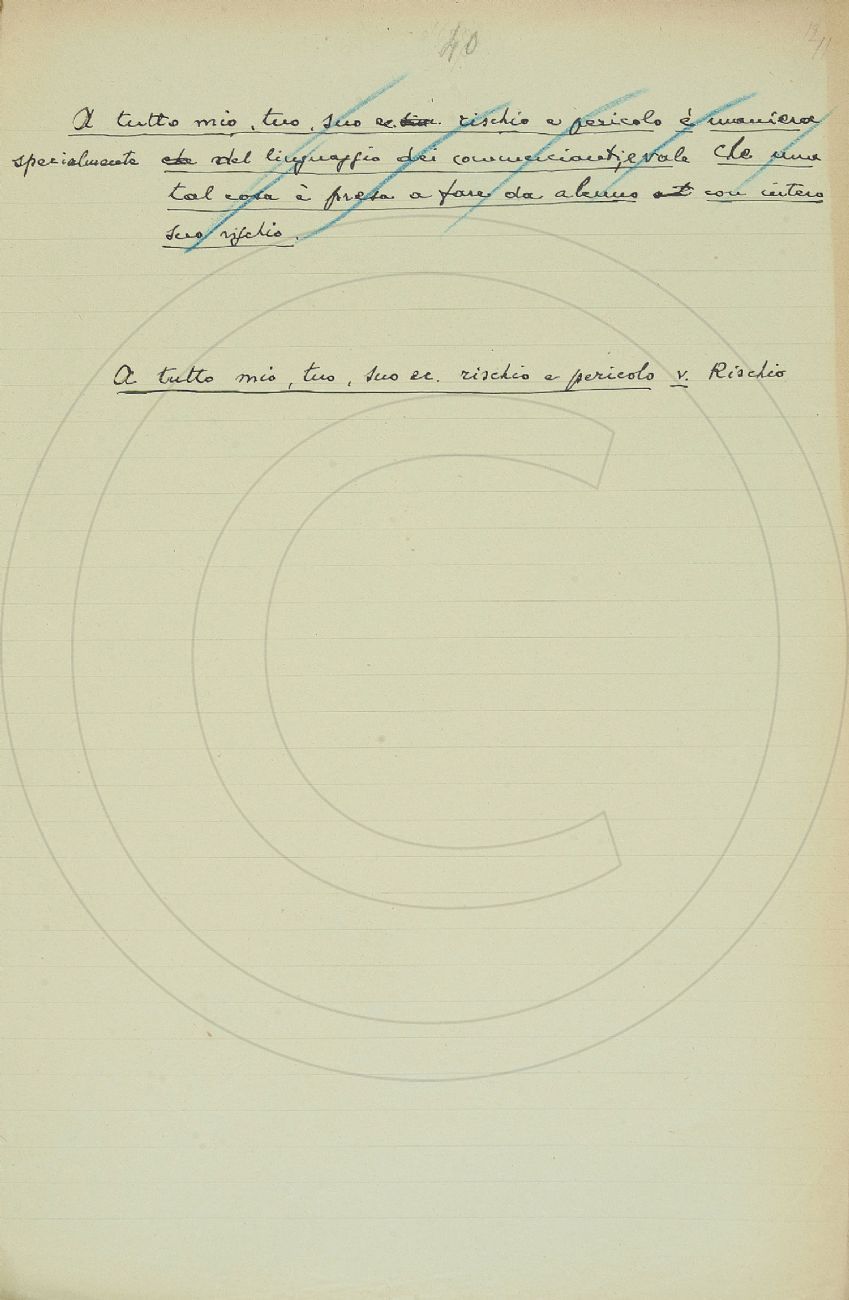 40
A tutto mio, tuo, suo ec. rischio e pericolo è maniera
specialmente del linguaggio dei commercianti, e vale che una
tal cosa è presa a fare da alcuno con intero
suo rischio.
A tutto mio, tuo, suo ec. rischio e pericolo v. Rischio